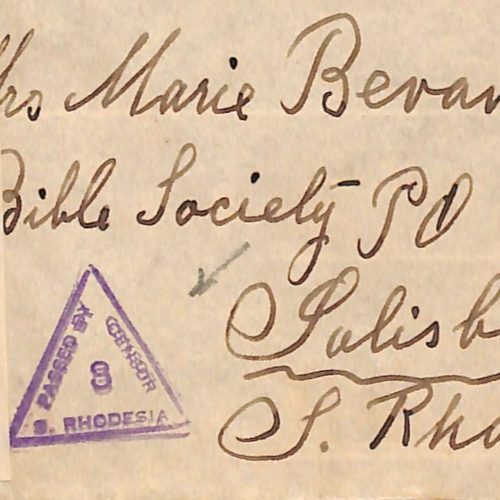 Mrs Marie Bevan
Bible Society PO
Salisb
S. Rho
PASSED BY
CENSOR
8
S. RHODESIA